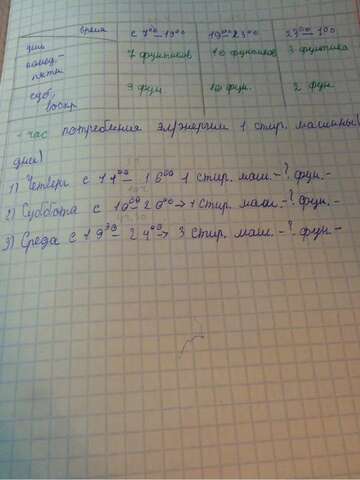 время с 7⁰⁰–19⁰⁰ 19⁰⁰–23⁰⁰ 23⁰⁰–7⁰⁰
дни
понед.- 7 фунтиков 10 фунтиков 3 фунтика
пятн
суб, 9 фун. 10 фун. 2 фун.
воскр.
час потребления эл/энергии 1 стир. машины
дни)
1) Четверг с 11⁰⁰– 16⁰⁰ 1 стир. маш. -? фун. -
2) Суббота с 10⁰⁰ 20⁰⁰→ 1 стир. маш. -? фун. -
3) Среда с 19³⁰– 24⁰⁰→ 3 стир. маш. -? фун. -